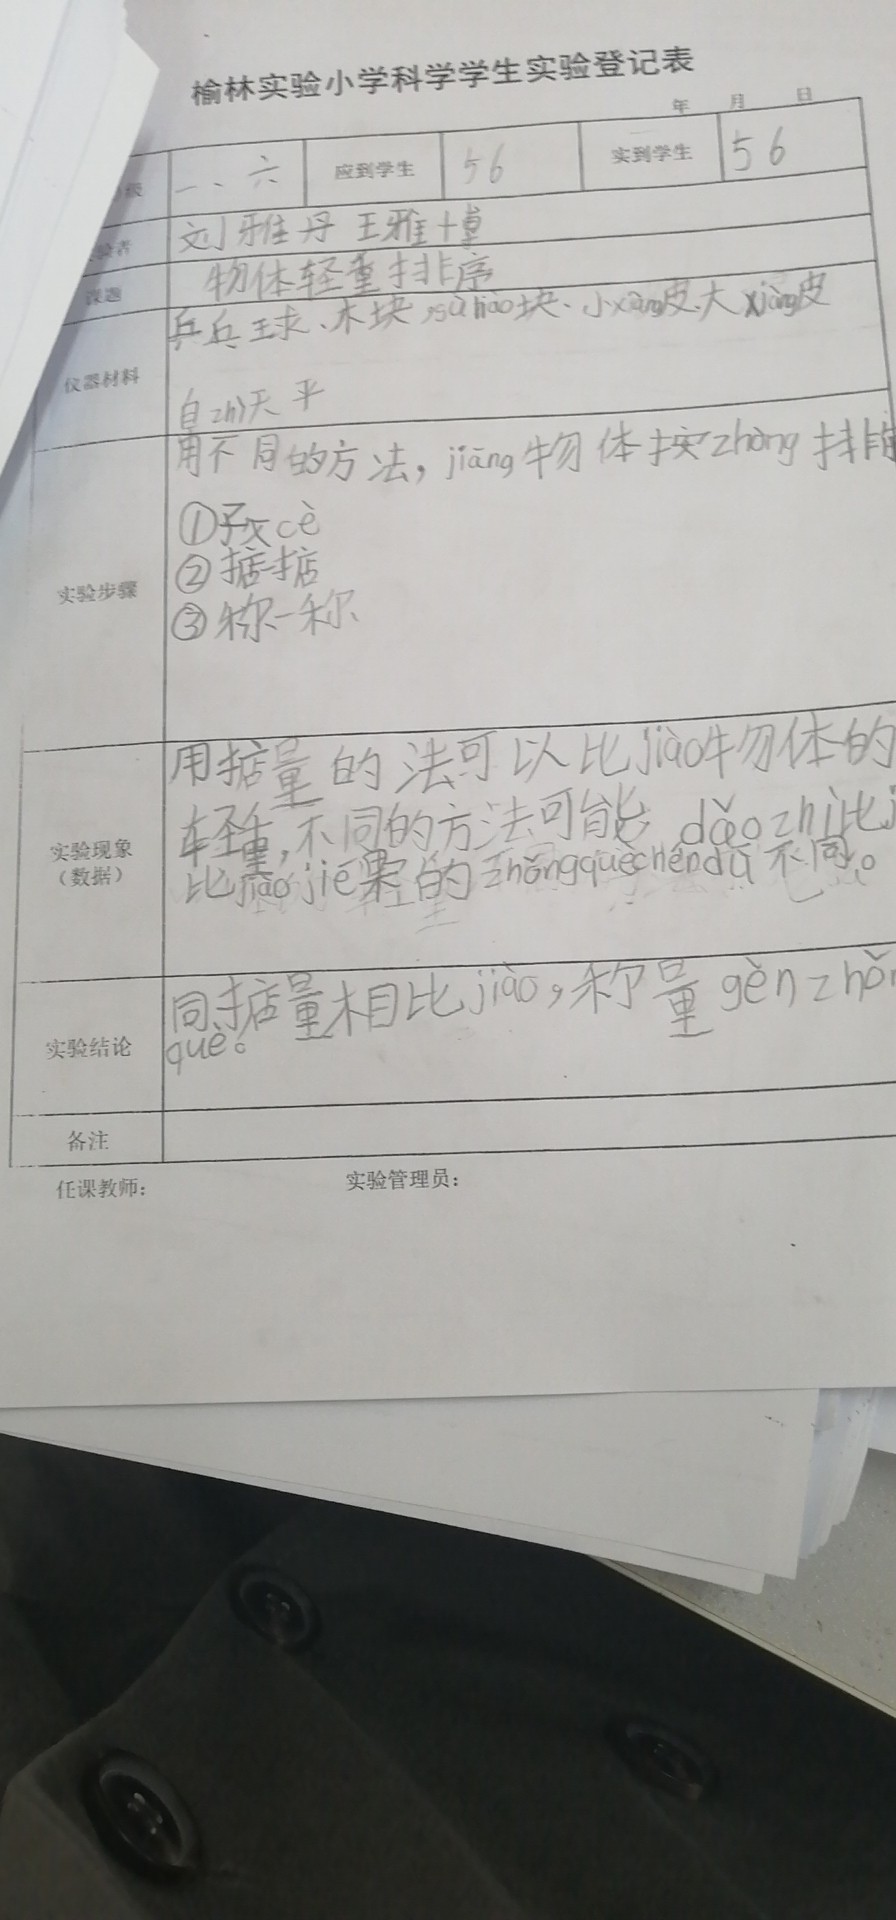 榆林实验小学科学学生实验登记表
年 月 日
级 一、六 应到学生 56 实到学生 56
验者 刘雅丹 王雅博
课题 物体轻重排序
仪器材料 乒乓球、木块,sùliào块、小xiàng皮、大xiàng皮
自zhì天平
实验步骤 用不同的方法,jiāng物体按zhòng排
①预cè
②掂掂
③称一称
实验现象 用掂量的法可以比jiào物体的
(数据) 轻重,不同的方法可能 dǎozhì比
比jiào jié果的zhǔnquèchéndù不同。
实验结论 同掂量相比jiào,称量gèn zhǔ
què。
备注
任课教师: 实验管理员: